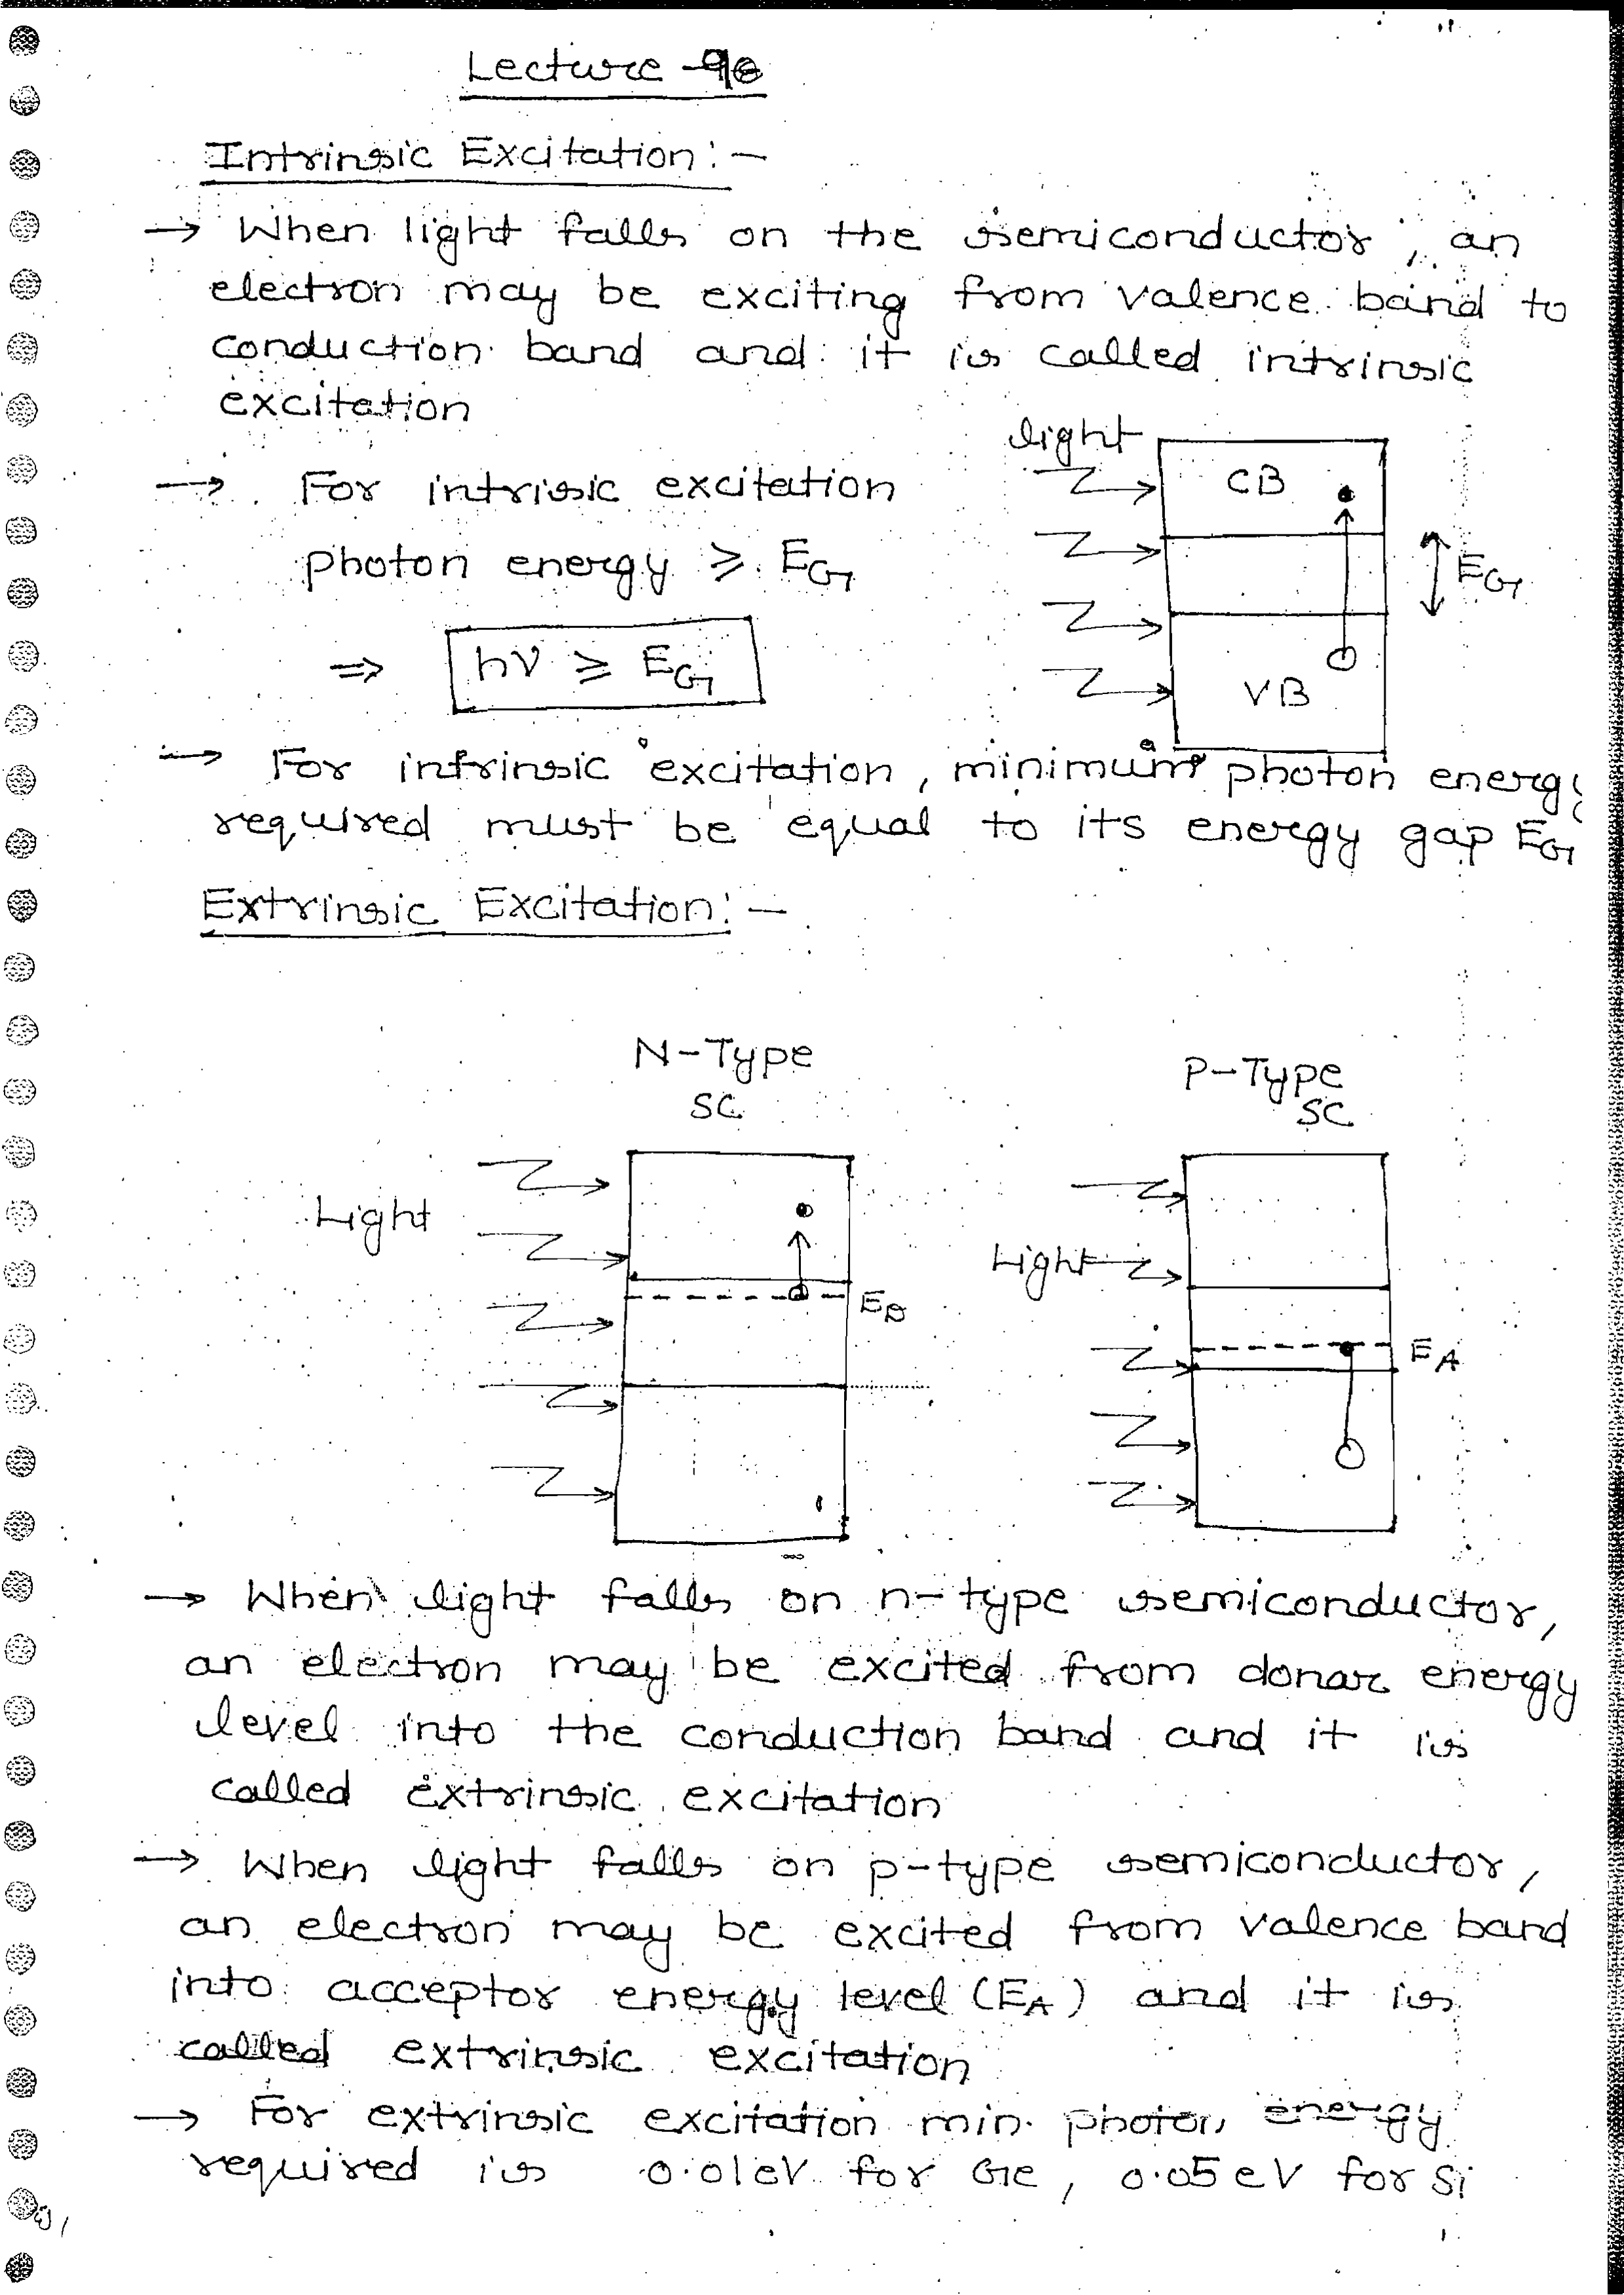 Lecture -
Intrinsic Excitation:-
→ When light falls on the semiconductor, an
electron may be exciting from valence band to
conduction band and it is called intrinsic
excitation
light
→ For intrisic excitation
CB
photon energy ≥ EG
EG
⇒ hν ≥ EG
VB
→ For intrinsic excitation, minimum photon energy
required must be equal to its energy gap EG
Extrinsic Excitation:-
N-Type
SC
P-Type
SC
Light
Light
ED
EA
→ When light falls on n-type semiconductor,
an electron may be excited from donar energy
level into the conduction band and it is
called extrinsic excitation
→ When light falls on p-type semiconductor,
an electron may be excited from valence band
into acceptor energy level (EA) and it is
called extrinsic excitation
→ For extrinsic excitation min. photon energy
required is 0.01eV for Ge, 0.05eV for Si